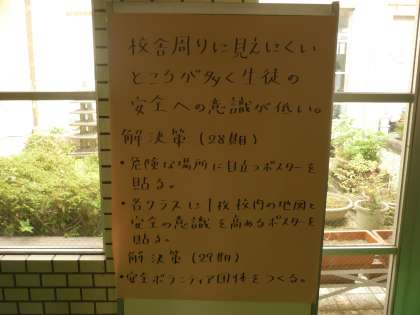 校舎周りに見えにくい
ところが多く生徒の
安全への意識が低い。
解決策(28期)
・危険な場所に目立つポスターを
貼る。
・各クラスに1枚校内の地図と
安全の意識を高めるポスターを
貼る。
解決策(29期)
・安全ボランティア団体をつくる。